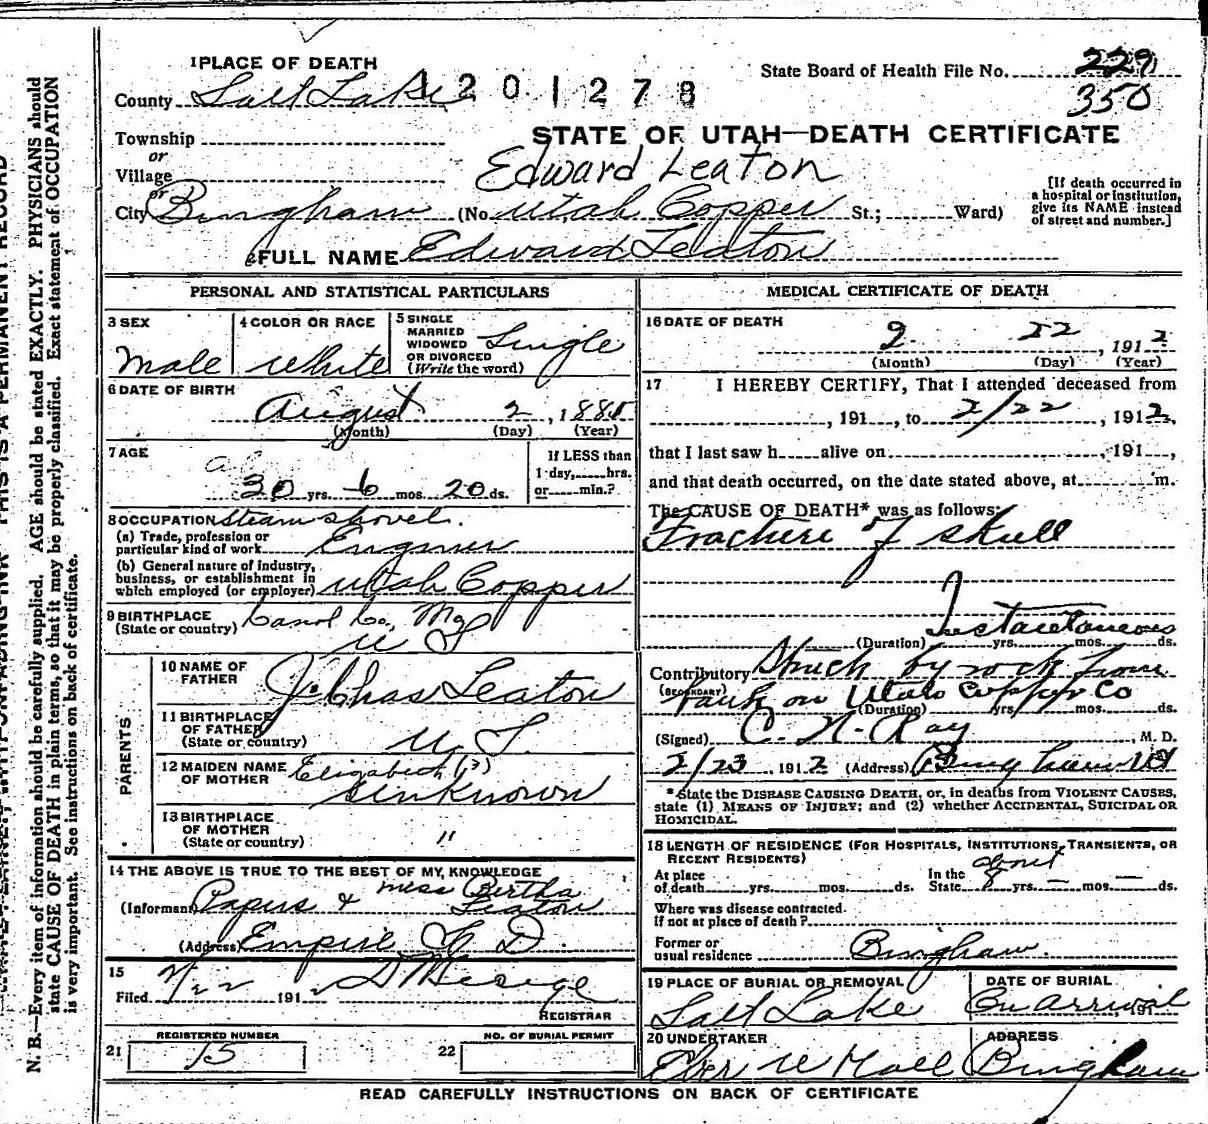 1 PLACE OF DEATH
State Board of Health File No. 229
County Salt Lake 1201278
350
Township
STATE OF UTAH—DEATH CERTIFICATE
or
Village
Edward Leaton
or
City Bingham (No. Utah Copper St.; Ward)
[If death occurred in a hospital or institution, give its NAME instead of street and number.]
2 FULL NAME Edward Leaton
PERSONAL AND STATISTICAL PARTICULARS
3 SEX
Male
4 COLOR OR RACE
White
5 SINGLE MARRIED WIDOWED OR DIVORCED (Write the word)
Single
6 DATE OF BIRTH
August 2, 1881
(Month) (Day) (Year)
7 AGE
ab
30 yrs. 6 mos. 20 ds.
If LESS than
1 day, hrs.
or min.?
8 OCCUPATION Steam shovel
(a) Trade, profession or
particular kind of work Engineer
(b) General nature of industry,
business, or establishment in
which employed (or employer) Utah Copper
9 BIRTHPLACE
(State or country) Carrol Co, Mo
U S
PARENTS
10 NAME OF FATHER
J. Chas Leaton
11 BIRTHPLACE OF FATHER (State or country)
U. S.
12 MAIDEN NAME OF MOTHER
Elizabeth (?)
Unknown
13 BIRTHPLACE OF MOTHER (State or country)
"
14 THE ABOVE IS TRUE TO THE BEST OF MY KNOWLEDGE
(Informant) Papers & Miss Bertha Leaton
(Address) Empire
15
Filed 2/22 1912
REGISTRAR
REGISTERED NUMBER
21 15
NO. OF BURIAL PERMIT
22
MEDICAL CERTIFICATE OF DEATH
16 DATE OF DEATH
2 22, 1912
(Month) (Day) (Year)
17 I HEREBY CERTIFY, That I attended deceased from
, 191 , to 2/22, 1912,
that I last saw h alive on , 191 ,
and that death occurred, on the date stated above, at m.
The CAUSE OF DEATH* was as follows:
Fracture of skull
Instantaneous
(Duration) yrs. mos. ds.
Contributory Struck by rock from
(SECONDARY) bank on Utah Copper Co
(Duration) yrs. mos. ds.
(Signed) C. N. Ray, M. D.
2/23, 1912 (Address) Bingham Ut
*State the DISEASE CAUSING DEATH, or, in deaths from VIOLENT CAUSES,
state (1) MEANS OF INJURY; and (2) whether ACCIDENTAL, SUICIDAL OR
HOMICIDAL.
18 LENGTH OF RESIDENCE (FOR HOSPITALS, INSTITUTIONS, TRANSIENTS, OR
RECENT RESIDENTS)
about
At place of death yrs. mos. ds. In the State 8 yrs. — mos. — ds.
Where was disease contracted.
If not at place of death?
Former or
usual residence Bingham.
19 PLACE OF BURIAL OR REMOVAL
Salt Lake
DATE OF BURIAL
On Arrival 191
20 UNDERTAKER
Eber W Hall
ADDRESS
Bingham
READ CAREFULLY INSTRUCTIONS ON BACK OF CERTIFICATE
N. B.—Every item of information should be carefully supplied. AGE should be stated EXACTLY. PHYSICIANS should
state CAUSE OF DEATH in plain terms, so that it may be properly classified. Exact statement of OCCUPATION
is very important. See instructions on back of certificate.
THIS IS A PERMANENT RECORD